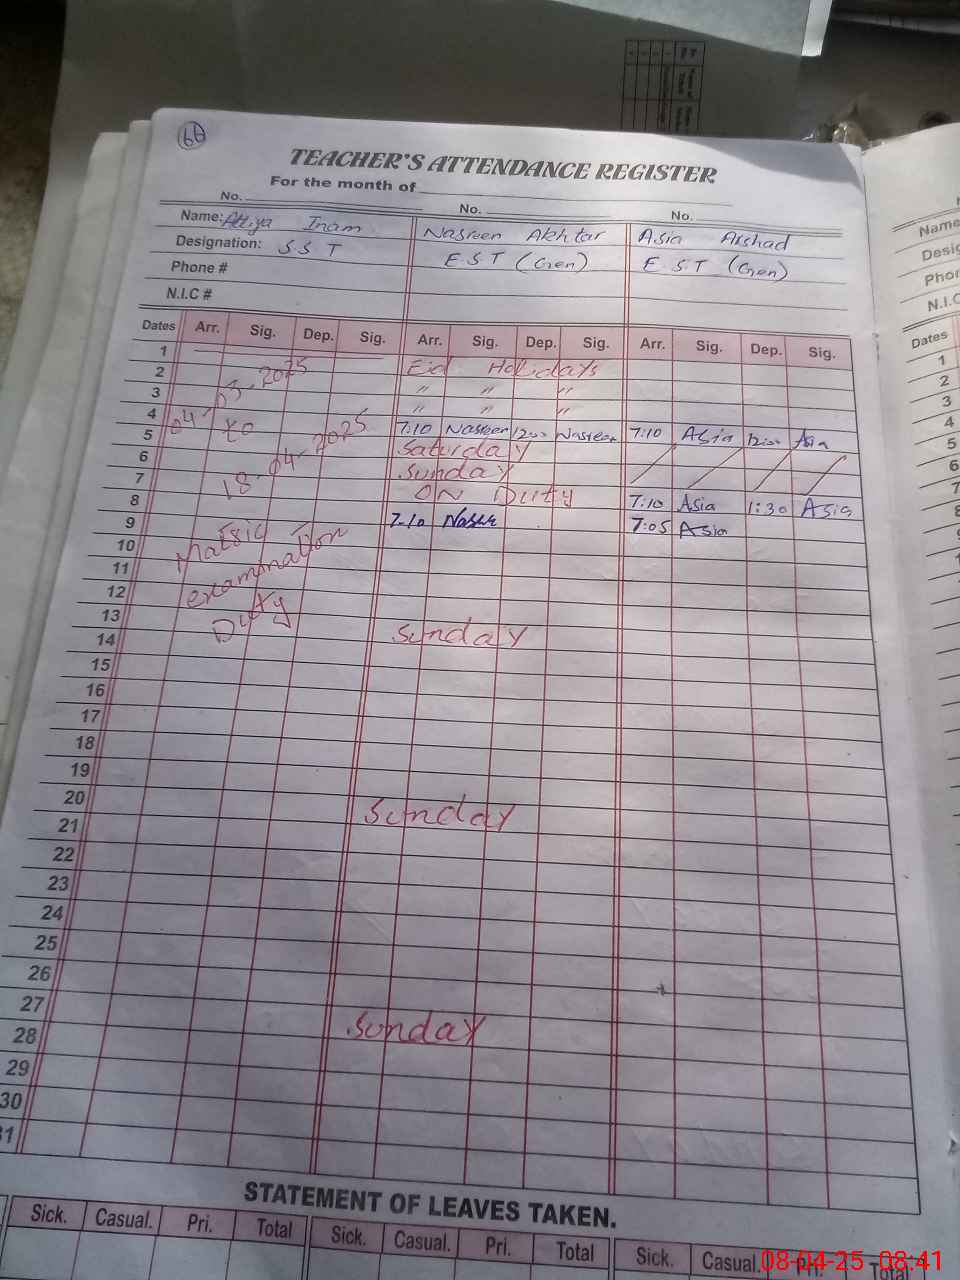 TEACHER'S ATTENDANCE REGISTER
For the month of
No. No. No.
Name: Attiya Inam Nasreen Akhtar Asia Arshad
Designation: S S T E.S.T (Gen) E.S.T (Gen)
Phone #
N.I.C #
Dates Arr. Sig. Dep. Sig. Arr. Sig. Dep. Sig. Arr. Sig. Dep. Sig.
1 Eid Holidays
2 " " "
3 " " "
4 7:10 Nasreen 12:00 Nasreen 7:10 Asia 12:00 Asia
5 Saturday
6 Sunday
7 ON Duty 7:10 Asia 1:30 Asia
8 7-10 7:05 Asia
9
10
11
12
13 Sunday
14
15
16
17
18
19
20 Sunday
21
22
23
24
25
26
27 Sunday
28
29
30
31
04-03-2025
to
18-04-2025
Matric
examination
Duty
STATEMENT OF LEAVES TAKEN.
Sick. Casual. Pri. Total Sick. Casual. Pri. Total Sick. Casual. Pri. Total
Name
Dates
1
2
3
4
5
6
7
N.I.C
08-04-25 08:41